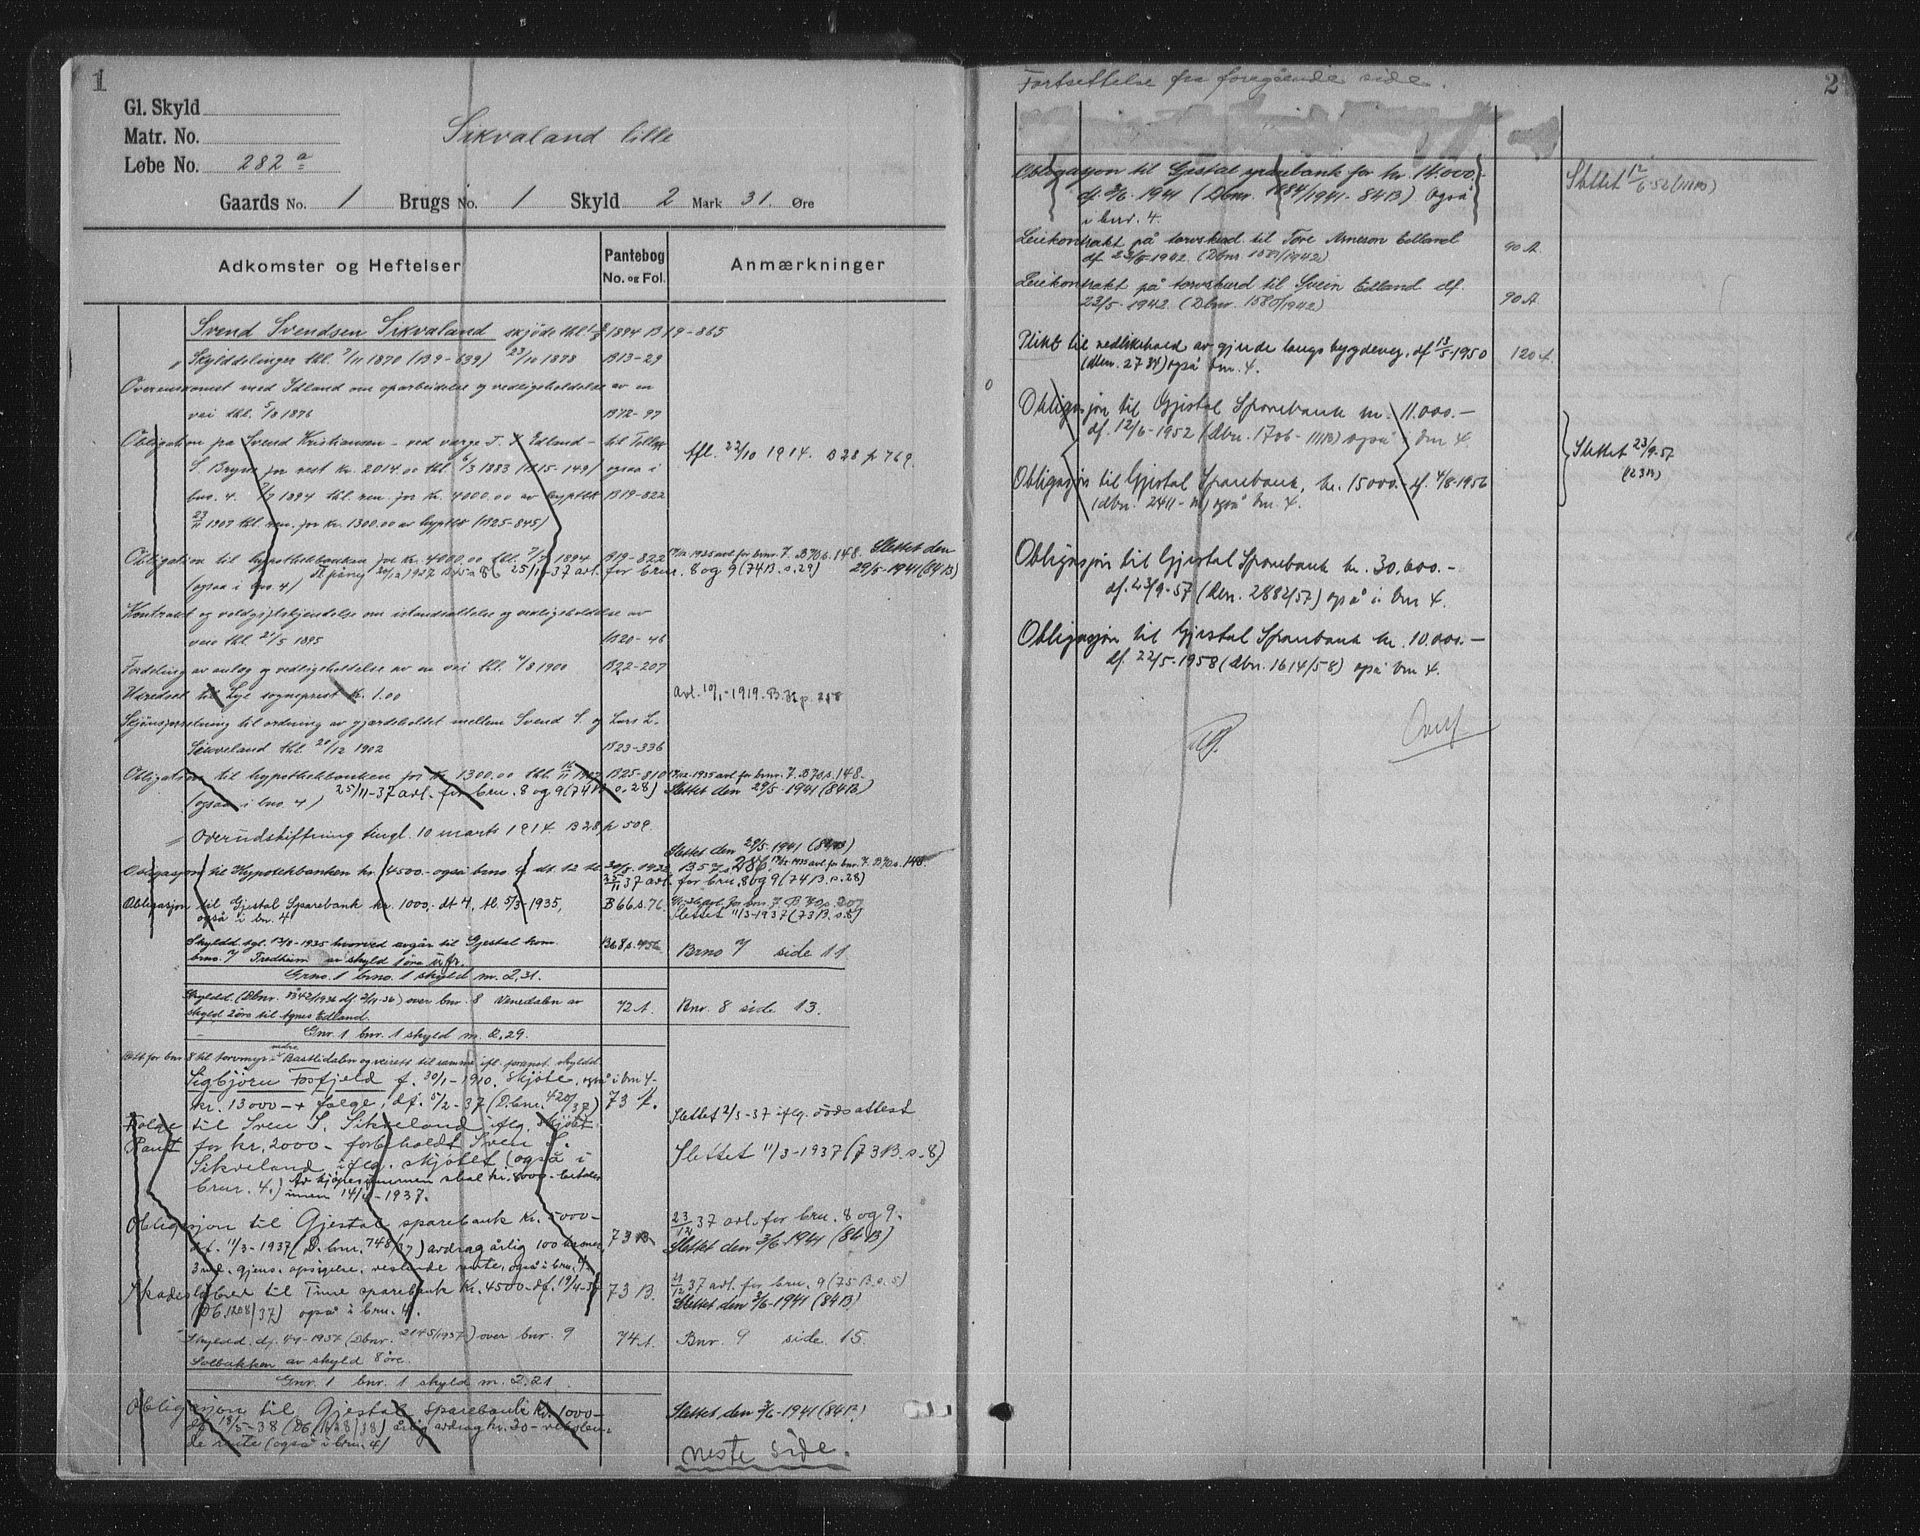 1
Gl. Skyld
Matr. No.
Løbe No. 282 a
Sikvaland lille
Gaards No. 1 Brugs No. 1 Skyld 2 Mark 31. Øre
Adkomster og Heftelser
Pantebog No. og Fol.
Anmærkninger
Svend Svendsen Sikvaland skjøde thl. 1894 B19-865
Skylddelinger thl. 7/11 1870 (B9-639) 23/10 1878 B13-29
Overenskomst med Idland om oparbeidelse og vedligeholdelse av en
vei thl. 5/8 1876 B12-97
Obligation på Svend Kristiansen - ved værge T. Edland - til
S. Bryne for rest kr. 2014.00 thl 6/3 1883 (B15-149) ogsaa i
bno. 4. 7/7 1894 thl. ren. for kr. 4000.00 av hypthk B19-822
23/11 1907 thl. ren. for kr. 1300.00 av hypthk (B25-845)
Afl. 22/10 1914. B28 p 769.
Obligation til hypothekbanken for kr. 4000.00 thl. 7/7 1894 B19-822 avl for bnr. 7. B70 s. 148. Slettet den
(ogsaa i bno. 4) 25/11-37 avl. for bnr. 8 og 9 (74B. s. 29) 29/5-1941 (84B)
Kontrakt og voldgiftskjendelse om istandsættelse og vedligeholdelse av
veie thl. 21/5 1895 B20-46
Fordeling av anlæg og vedligeholdelse av en vei thl. 4/8 1900 B22-207
Hæredsat til Lye sogneprest kr. 1.00 avl. 10/1-1919. B. 32 p. 258
Skjønsforretning til ordning av gjærdeholdet mellem Svend S. og Lars L.
Sikveland thl. 20/12 1902 B23-336
Obligation til hypothekbanken for kr 1300.00 thl. B25-810 avl for bnr. 7. B70 s. 148.
(ogsaa i bno. 4) 25/11-37 avl. for bnr. 8 og 9 (74B s. 28) Slettet den 29/5-1941 (84B)
Overudskiftning tingl. 10 marts 1914. B28 p 509.
Slettet den 29/5-1941 (84B)
Obligasjon til Hypotekbanken kr. 4500.- også bno 4 avl for bnr. 7. B70 s. 148.
25/11 37 avl. for bnr. 8 og 9 (74B. s. 28)
Obligasjon til Gjestal Sparebank kr. 1000.- dt 4, tl. 5/3-1935, B66 s. 76. avl. for bnr. 7. B 70 s. 207
også i bnr. 4 Slettet 11/3-1937 (73B. s. 8)
Skyldd. tgl. 1935 hvorved avgår til Gjestal kom. B68 s. 456
brno. 7 Fredheim av skyld 1 øre
Brno 7 side 11
Grno. 1 brno. 1 skyld m. 2,31.
Skyldd. (Dbnr. 3342/1936 df 2/11-36) over bnr. 8 Venedalen av
skyld 2 øre til Agnes Edland. 72 A. Bnr. 8 side 13.
Gnr. 1 bnr. 1 skyld m. 2,29.
Rett for bnr 8 til torvmyr i nedre Bastlidalen og veirett til samme ifl. foranst. skyldd.
Sigbjørn Fosfjeld f. 30/1-1910. skjøte, også i bnr 4-
kr. 13000- + følge, df. 5/2-37 (Dbnr. 420/37) 73 A.
Følge til Sven S. Sikveland iflg. skjøte. Slettet 2/3-37 iflg. dødsattest
Pant for kr. 2000- forbeholdt Sven S.
Sikveland iflg. skjøtet (også i
bnr. 4.) Av kjøpesummen skal kr. 8000- betales
innen 14/4-1937.
Slettet 11/3-1937 (73B. s. 8)
Obligasjon til Gjestal sparebank kr. 5000-
df. 11/3-1937 (Dbnr. 748/37) avdrag årlig 100 kroner, 73B
3 md. gjens. opsigelse, resterende rente, også i bnr. 4.
23/12 37 avl. for bnr. 8 og 9.
Slettet den 3/6-1941 (84B)
Skadesløsbrev til Time sparebank kr. 4500- df. 19/4-37 73 B.
(Db. 1208/37) også i bnr. 4.
21/12 37 avl. for bnr. 9 (75B. s. 5)
Slettet den 3/6-1941 (84B)
Skyldd. df. 4/9-1937 (Dbnr. 2145/1937) over bnr. 9 74 A. Bnr. 9 side 15.
Solbakken av skyld 8 øre.
Gnr. 1 bnr. 1 skyld m. 2,21.
Obligasjon til Gjestal sparebank kr. 1000- Slettet den 3/6-1941 (84B)
df 18/5-38 (Db. 1428/38) årlig avdrag kr. 30-
rente (også i bnr. 4)
neste side.
2
Fortsettelse fra foregående side.
Obligasjon til Gjestal sparebank for kr. 14.000.-
df. 3/6-1941 (Dbnr. 1184/1941-84B) Også
i bnr. 4.
Slettet 12/6 52 (111B)
Leiekontrakt på torvskurd til Tore Arneson Edland
df. 23/5-1942. (Dbnr 1581/1942) 90 A
Leiekontrakt på torvskurd til Svein Edland df.
23/5-1942. (Dbnr. 1580/1942) 90 A.
Plikt til vedlikehold av gjerde langs bygdeveg, df 13/5-1950 120 A.
(dbnr. 2784) også bnr. 4.
Obligasjon til Gjestal Sparebank kr. 11.000.-
df. 12/6-1952 (Dbnr. 1706-111B) også i bnr 4.
Obligasjon til Gjestal Sparebank, kr. 15000.- df. 4/8-1956
(dbnr. 2411-) også bnr. 4.
Slettet 23/9-57
(123B)
Obligasjon til Gjestal Sparebank kr. 30.600.-
df. 23/9-57 (Dbnr. 2882/57) også i bnr 4.
Obligasjon til Gjestal Sparebank kr. 10.000.-
df. 22/5-1958 (Dbnr. 1614/58) også bnr 4.
Overf